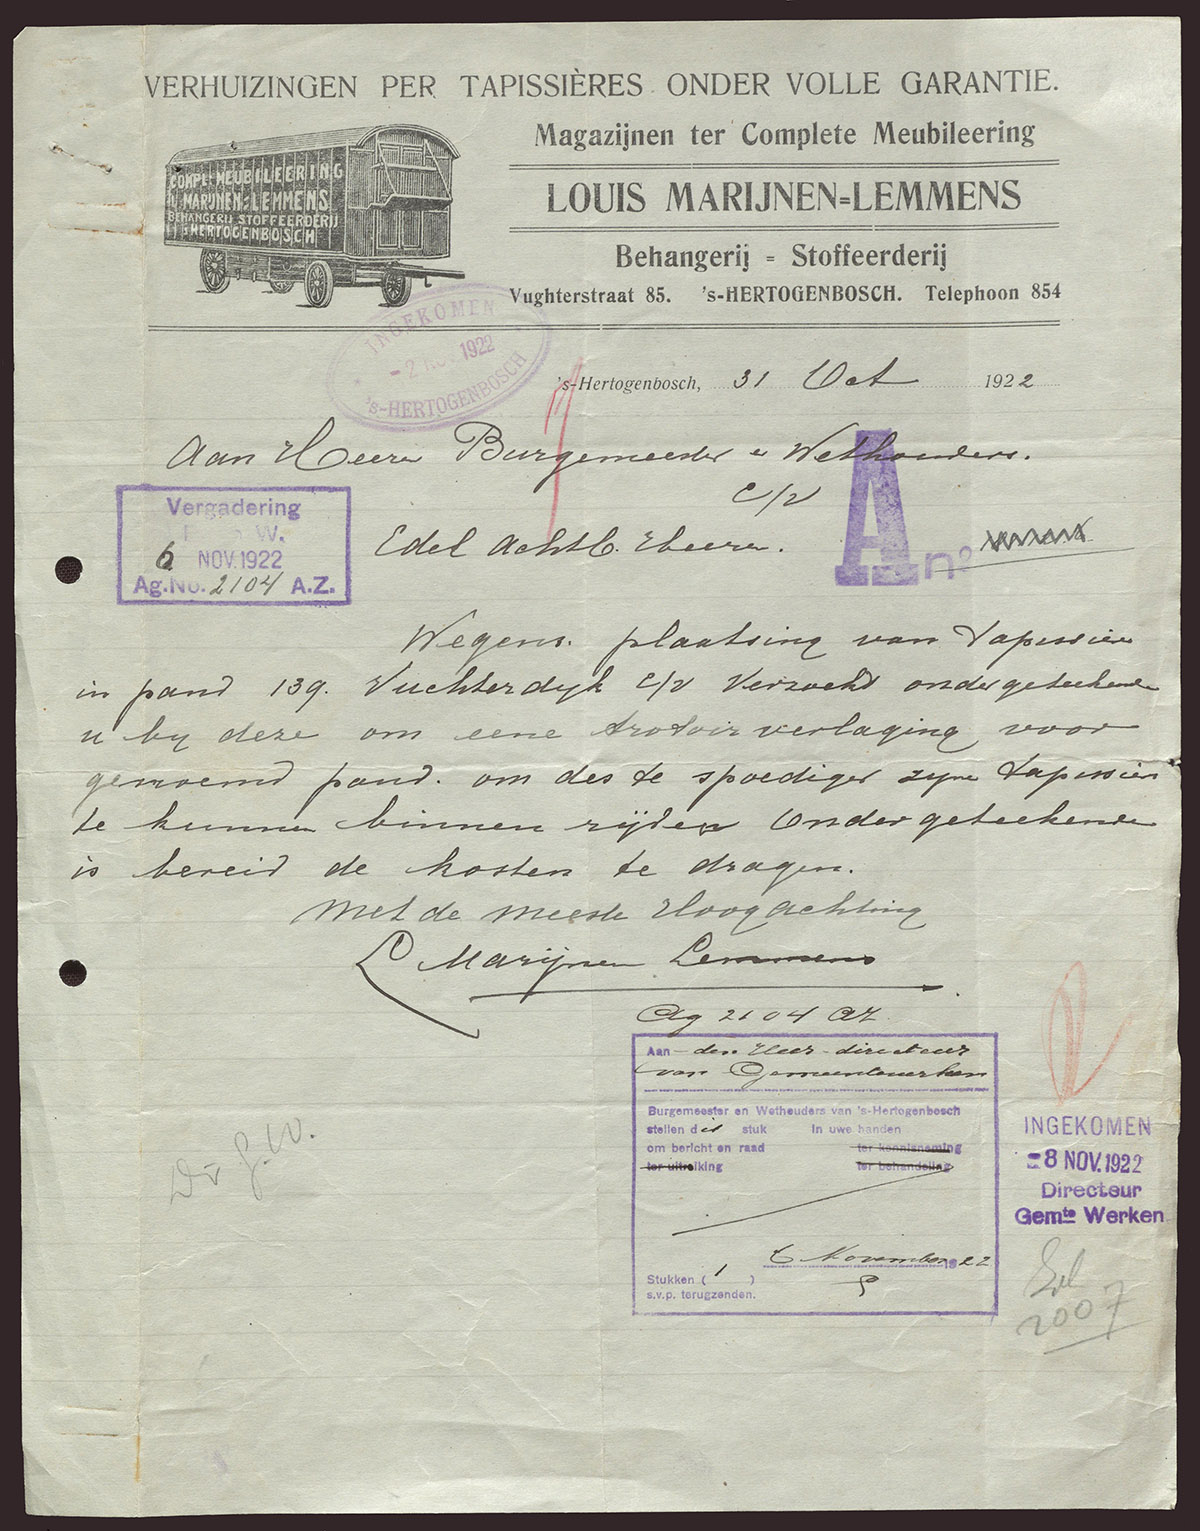 VERHUIZINGEN PER TAPISSIÈRES ONDER VOLLE GARANTIE.
Magazijnen ter Complete Meubileering
LOUIS MARIJNEN=LEMMENS
Behangerij = Stoffeerderij
Vughterstraat 85. 's-HERTOGENBOSCH. Telephoon 854
COMPL. MEUBILEERING
L. MARIJNEN=LEMMENS
BEHANGERIJ STOFFEERDERIJ
's HERTOGENBOSCH
INGEKOMEN
-2 NOV 1922
's-HERTOGENBOSCH
's-Hertogenbosch, 31 Oct 1922
Aan Heeren Burgemeester e Wethouders.
c/v
Vergadering
W.
6 NOV. 1922
Ag.No. 2104 A.Z.
Edel Achtb. Heeren.
A no
Wegens. plaatsing van tapissièr
in pand 139. Vuchterdyk c/v verzocht ondergeteekende
u by deze om eene trotoir verlaging voor
genoemd pand. om des te spoediger zyne tapissièr
te kunnen binnen rijden Ondergeteekende
is bereid de kosten te dragen.
Met de meeste Hoogachting
L Marijnen Lemmens
Ag 2104 AZ.
Aan den Heer directeur
van Gemeentewerken
Burgemeester en Wethouders van 's-Hertogenbosch
stellen dit stuk in uwe handen
om bericht en raad ter kennisneming
ter uitreiking ter behandeling
6 November 1922
Stukken ( 1 )
s.v.p. terugzenden.
INGEKOMEN
-8 NOV. 1922
Directeur
Gemte Werken
2007
Dr G.W.